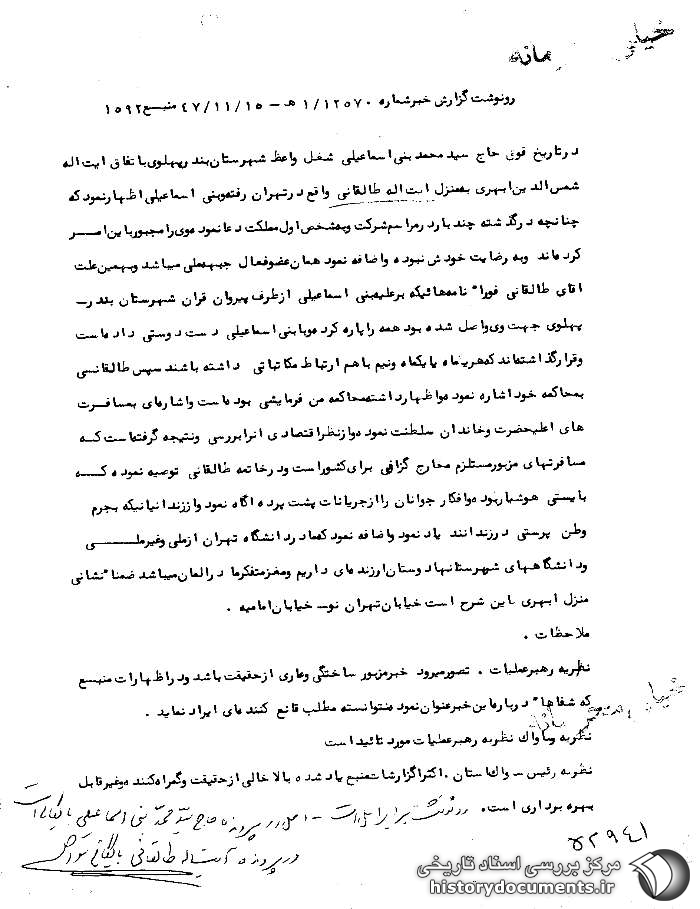 خیلی
مانه
رونوشت گزارش خبر شماره ۱/۱۲۵۷۰ هـ - ۴۷/۱۱/۱۵ منبع ۱۵۹۲
درتاریخ فوق حاج سید محمد بنی اسماعیلی شغل واعظ شهرستان بندرپهلوی باتفاق ایت اله
شمس الدین ابهری به منزل ایت اله طالقانی واقع در تهران رفته وبنی اسماعیلی اظهار نمود که
چنانچه درگذشته چند بار در مراسم شرکت وبه شخص اول مملکت دعا نموده وی را مجبور باین امر
کرده اند وبه رضایت خودش نبوده واضافه نمود همان عضو فعال جبهه ملی میباشد وبهمین علت
اقای طالقانی فورا" نامه هائیکه بر علیه بنی اسماعیلی ازطرف پیروان قران شهرستان بندر-
پهلوی جهت وی واصل شده بود همه را پاره کرده وبا بنی اسماعیلی دست دوستی داده است
وقرار گذاشته اند که هر ماه یا یکماه ونیم باهم ارتباط مکاتباتی داشته باشند سپس طالقانسی
به محاکمه خود اشاره نموده واظهار داشته محاکمه من فرمایشی بوده است واشاره ای به مسافرت
های اعلیحضرت وخاندان سلطنت نموده واز نظر اقتصادی انرا بررسی ونتیجه گرفته است که
مسافرتهای مزبور مستلزم مخارج گزافی برای کشور است ودر خاتمه طالقانی توصیه نموده که
بایستی هوشیار بود وافکار جوانان را از جریانات پشت پرده اگاه نمود واز زندانیانیکه بجرم
وطن پرستی درزندانند یاد نمود واضافه نمود که ما در دانشگاه تهران از ملی وغیر ملی
ودانشگاههای شهرستانها دوستان ارزنده ای داریم ومغز متفکر ما در المان میباشد ضمنا" نشانی
منزل ابهری باین شرح است خیابان تهران نو- خیابان امامیه .
ملاحظات .
نظریه رهبرعملیات . تصور میرود خبر مزبور ساختگی وعاری از حقیقت باشد ودر اظهارات منبع
که شفاها" درباره این خبر عنوان نمود نتوانسته مطلب قانع کننده ای ایراد نماید .
نظریه ساواک نظریه رهبرعملیات مورد تائید است
نظریه رئیس ساواک استان . اکثر گزارشات منبع یاد شده بالا خالی از حقیقت وگمراه کننده وغیرقابل
بهره برداری است .
رونوشت برابر اصل است - اصل در پرونده حاج سید محمد بنی اسماعیلی بایگانی است
در پرونده آیت اله طالقانی بایگانی شود
۵۲۹۴۱
مرکز بررسی اسناد تاریخی
historydocuments.ir